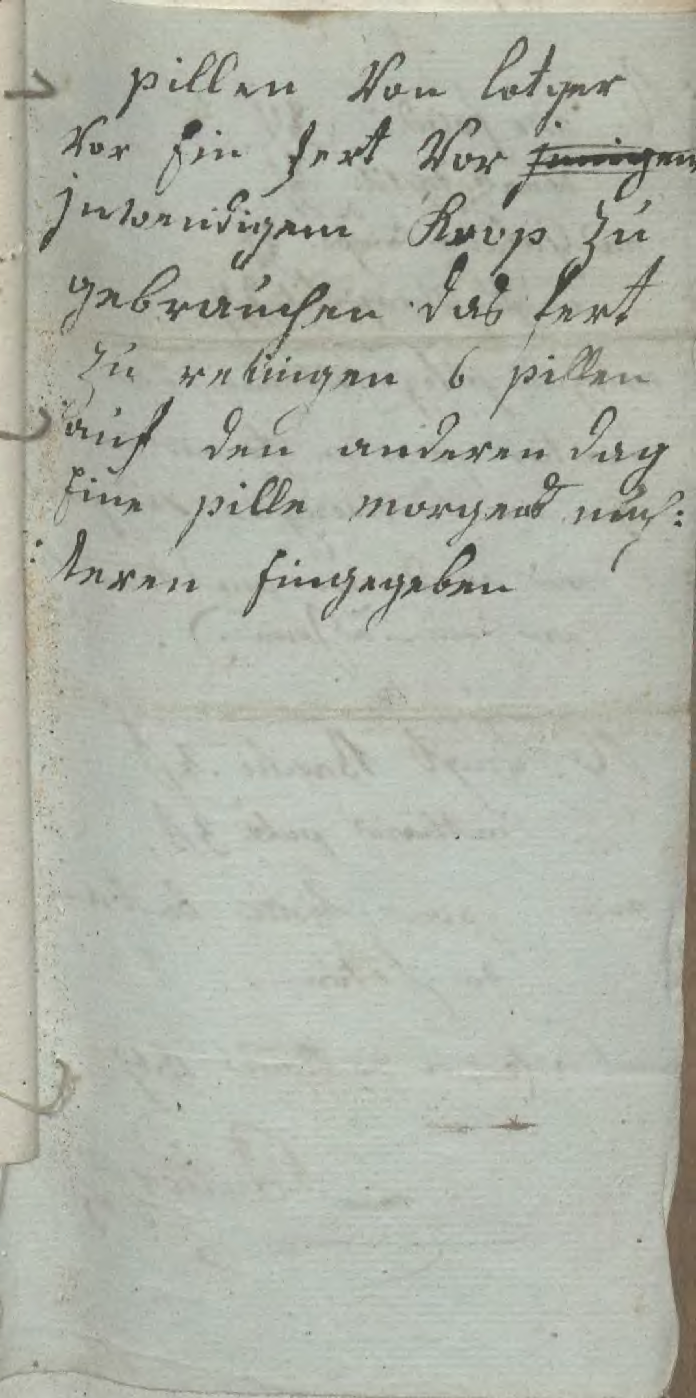 pillen Von lotger
Vor Ein fert Vor
jnwendigem Krop zu
gebrauchen das fert
zu reiingen 6 pillen
auf den anderen dag
Eine pille morgens nüch:
teren Eingegeben